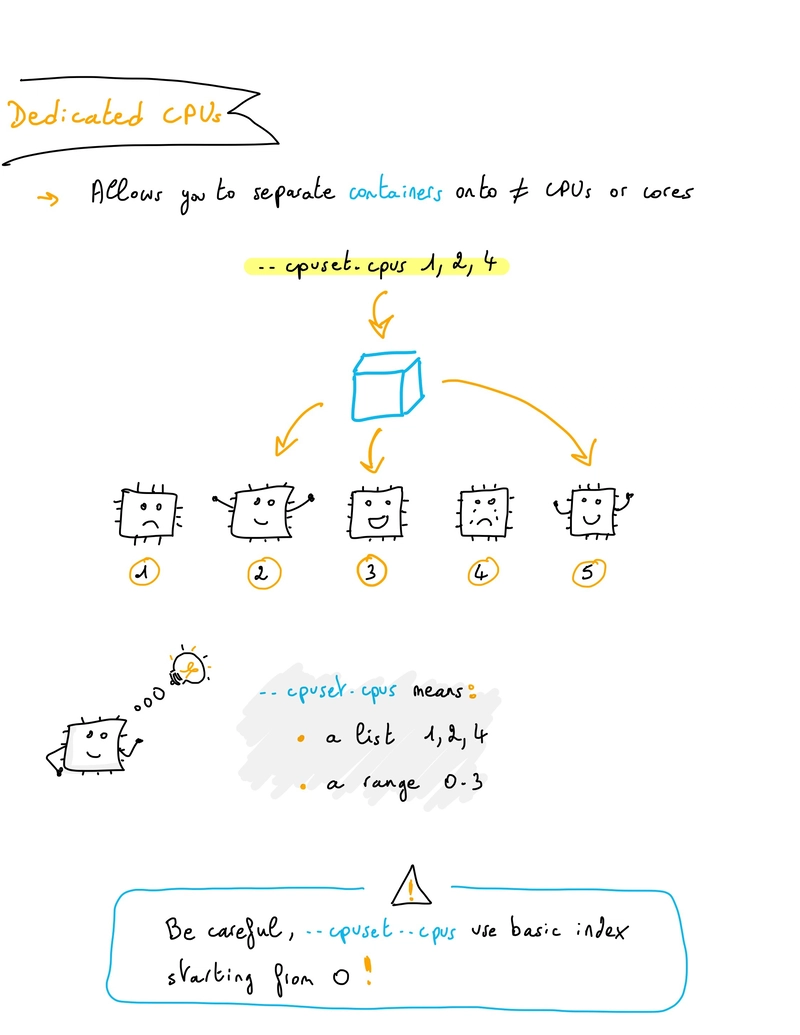 Dedicated CPUs
→ Allows you to separate containers onto ≠ CPUs or cores
--cpuset-cpus 1, 2, 4
1 2 3 4 5
--cpuset-cpus means:
• a list 1, 2, 4
• a range 0-3
!
Be careful, --cpuset--cpus use basic index
starting from 0 !